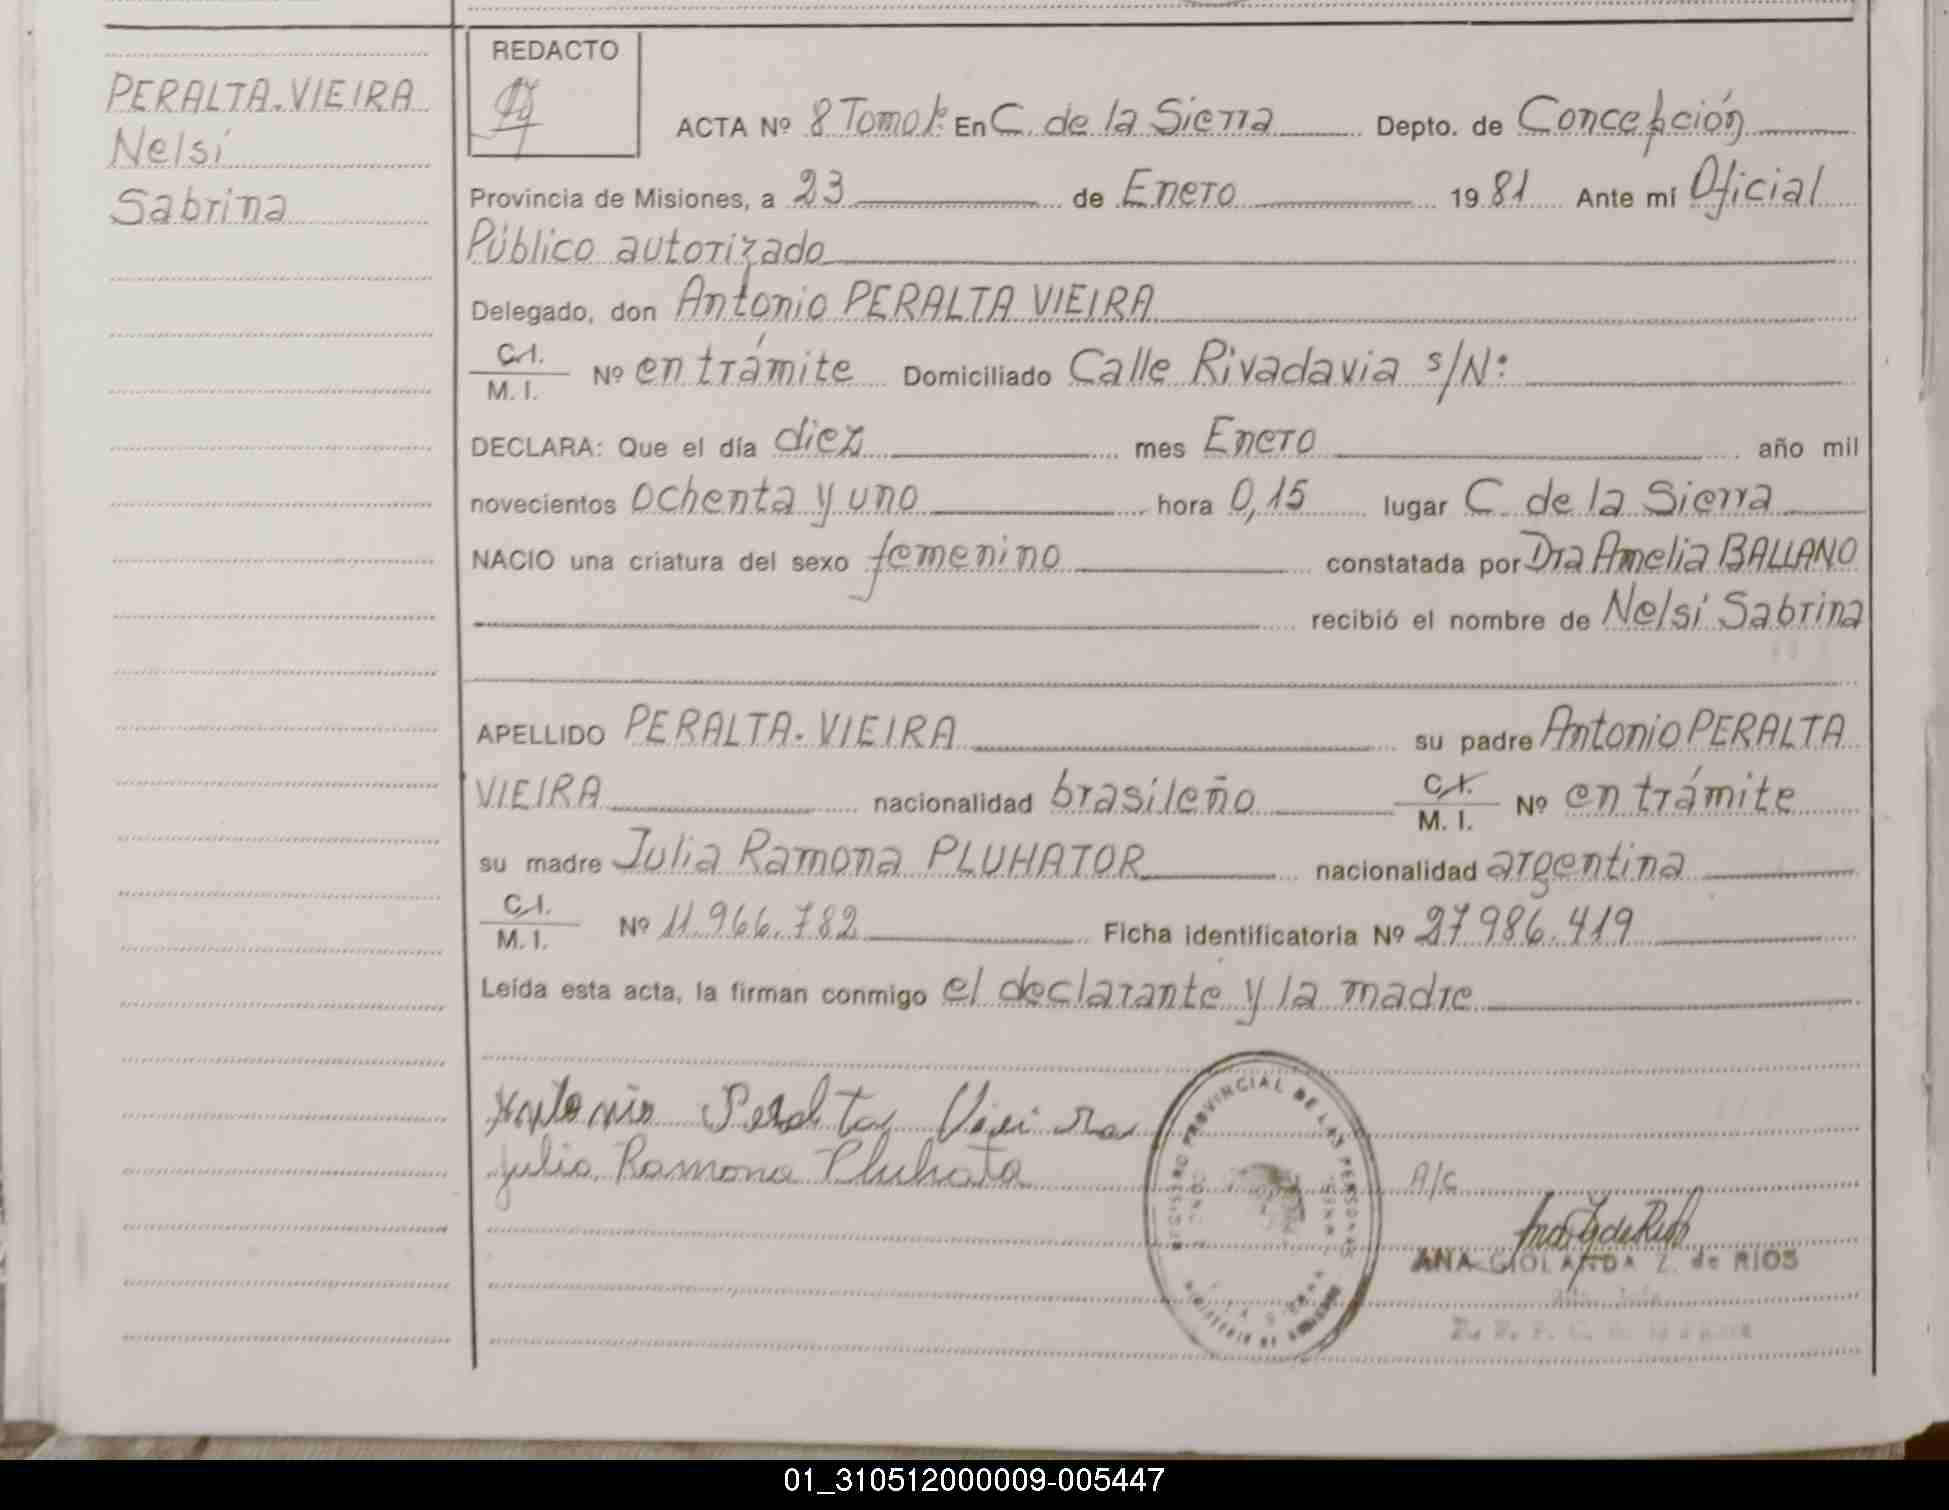 PERALTA.VIEIRA
Nelsi
Sabrina
REDACTO
ACTA Nº 8 Tomo 1: En C. de la Sierra Depto. de Concepción
Provincia de Misiones, a 23 de Enero 1981 Ante mí Oficial
Público autorizado
Delegado, don Antonio PERALTA VIEIRA
C.I.
M. I. Nº en trámite Domiciliado Calle Rivadavia s/N:
DECLARA: Que el día diez mes Enero año mil
novecientos ochenta y uno hora 0,15 lugar C. de la Sierra
NACIO una criatura del sexo femenino constatada por Dra Amelia BALLANO
recibió el nombre de Nelsi Sabrina
APELLIDO PERALTA.VIEIRA su padre Antonio PERALTA
VIEIRA nacionalidad brasileño C.I. M. I. Nº en trámite
su madre Julia Ramona PLUHATOR nacionalidad argentina
C.I.
M. I. Nº 11.966.782 Ficha identificatoria Nº 27986.419
Leída esta acta, la firman conmigo el declarante y la madre
Antonio Peralta Vieira
Julia Ramona Pluhata
REGISTRO PROVINCIAL DE LAS PERSONAS
MINISTERIO DE GOBIERNO
A/C
ANA GIOLANDA Z. de RIOS
01_310512000009-005447